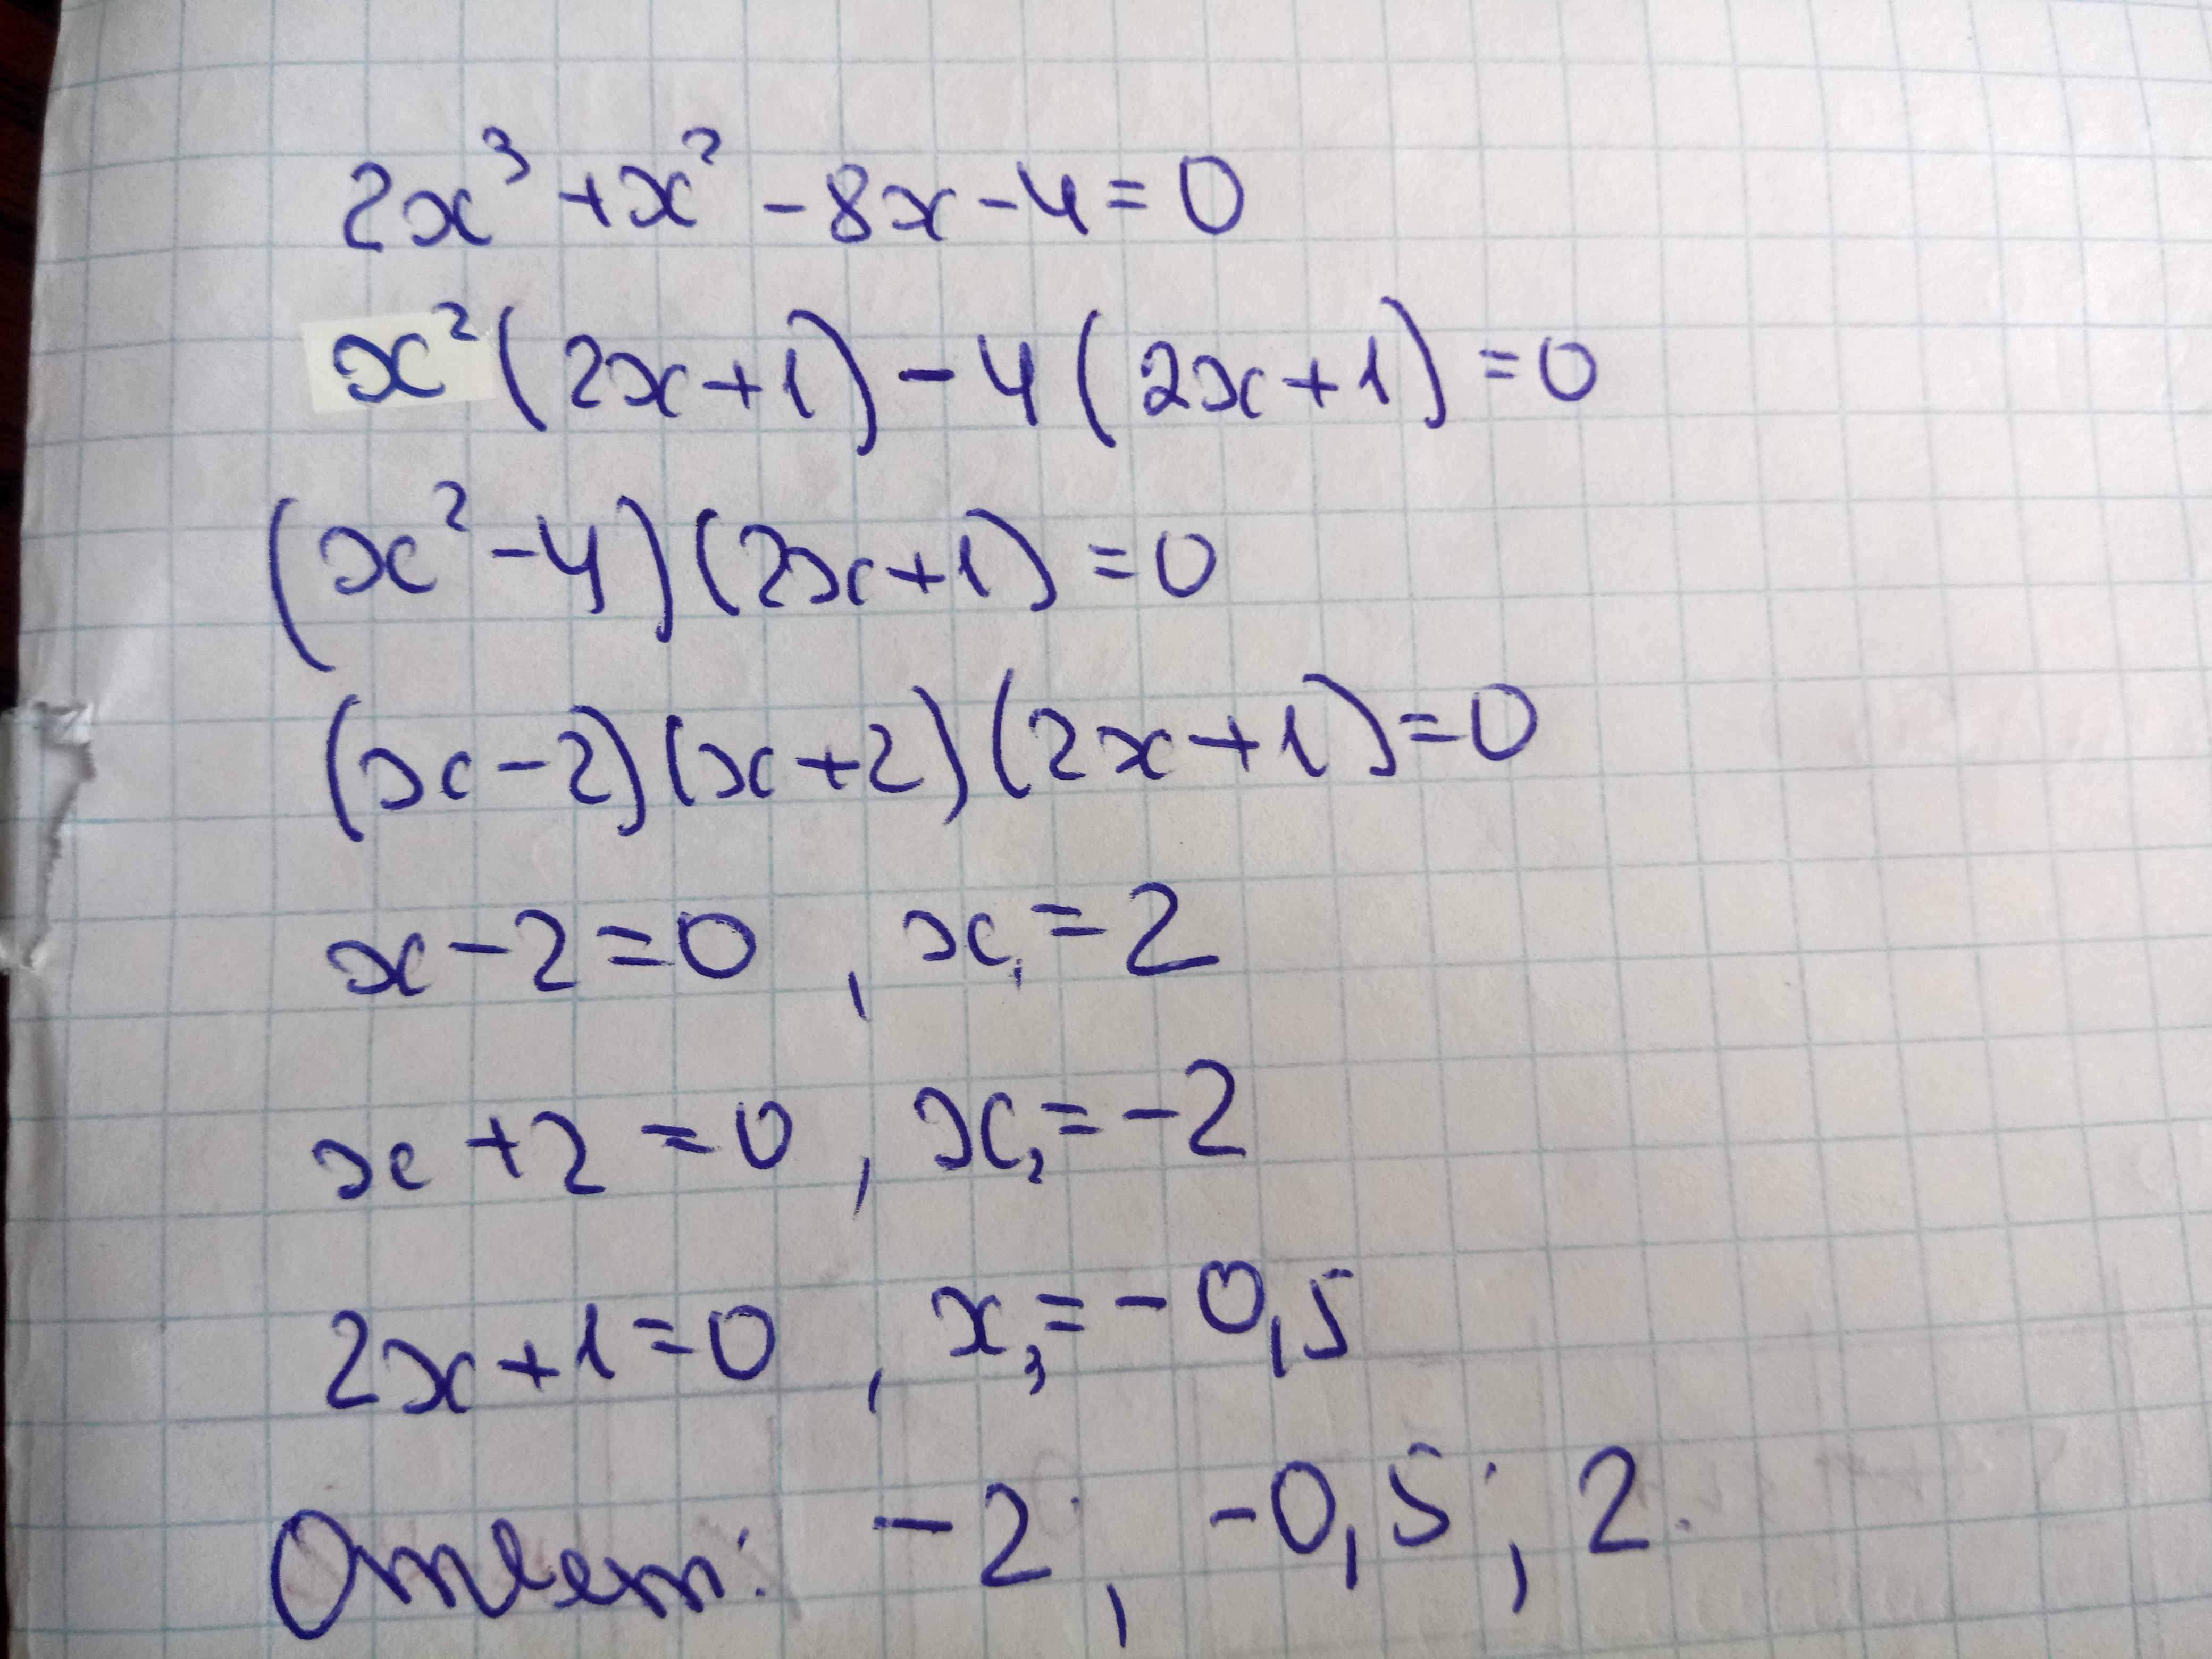 2x³ + x² - 8x - 4 = 0
x²(2x+1) - 4(2x+1) = 0
(x² - 4)(2x+1) = 0
(x-2)(x+2)(2x+1) = 0
x - 2 = 0 , x₁ = 2
x + 2 = 0 , x₂ = -2
2x + 1 = 0 , x₃ = -0,5
Ответ: -2 ; -0,5 ; 2.